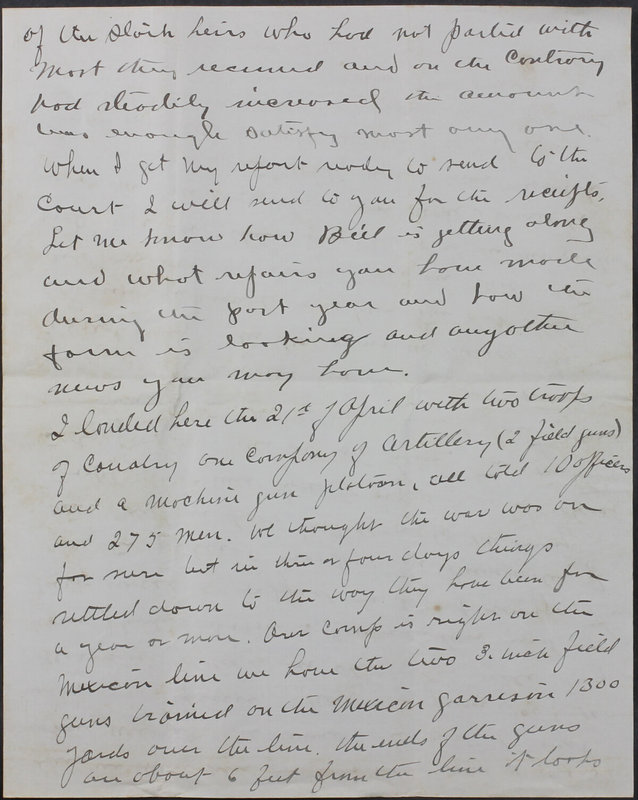 of the Slósh heirs who had not parted with
most they received and on the Contrary
had steadily increased the amount
was enough satisfy most any one.
When I get my report ready to send to the
Court I will send to you for the reciepts.
Let me know how Bill is getting along
and what repairs you have made
during the past year and how the
farm is looking and anyother
news you may have.
I landed here the 21st of April with two troops
of Cavalry one Company of Artillery (2 field guns)
and a machine gun platoon, all told 10 officers
and 275 men. We thought the war was on
for sure but in three or four days things
settled down to the way they have been for
a year or more. Our camp is right on the
Mexican line we have the two 3-inch field
guns trained on the Mexican garrison 1300
yards over the line. the ends of the guns
are about 6 feet from the line it looks